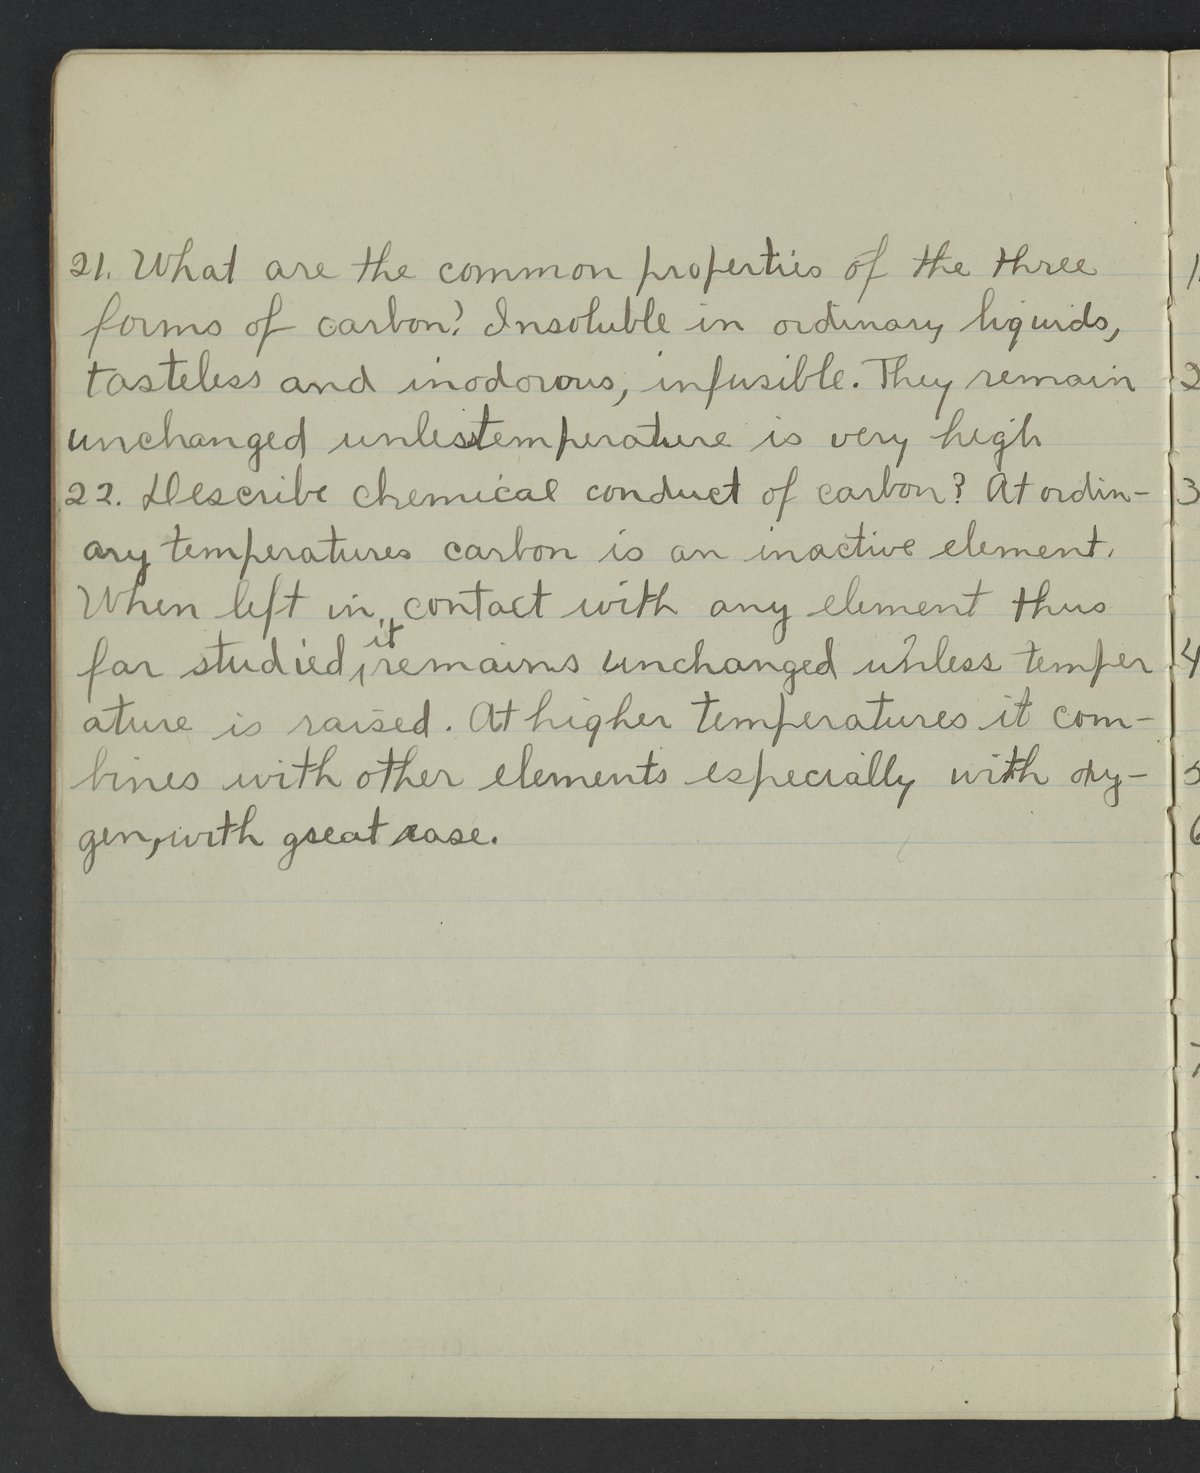 21. What are the common properties of the three
forms of carbon? Insoluble in ordinary liquids,
tasteless and inodorous, infusible. They remain
unchanged unless temperature is very high
22. Describe chemical conduct of carbon? At ordin-
ary temperatures carbon is an inactive element.
When left in contact with any element thus
far studied, it remains unchanged unless temper
ature is raised. At higher temperatures it com-
bines with other elements especially with oxy-
gen, with great ease.
1.
2
3
4
5
6
7